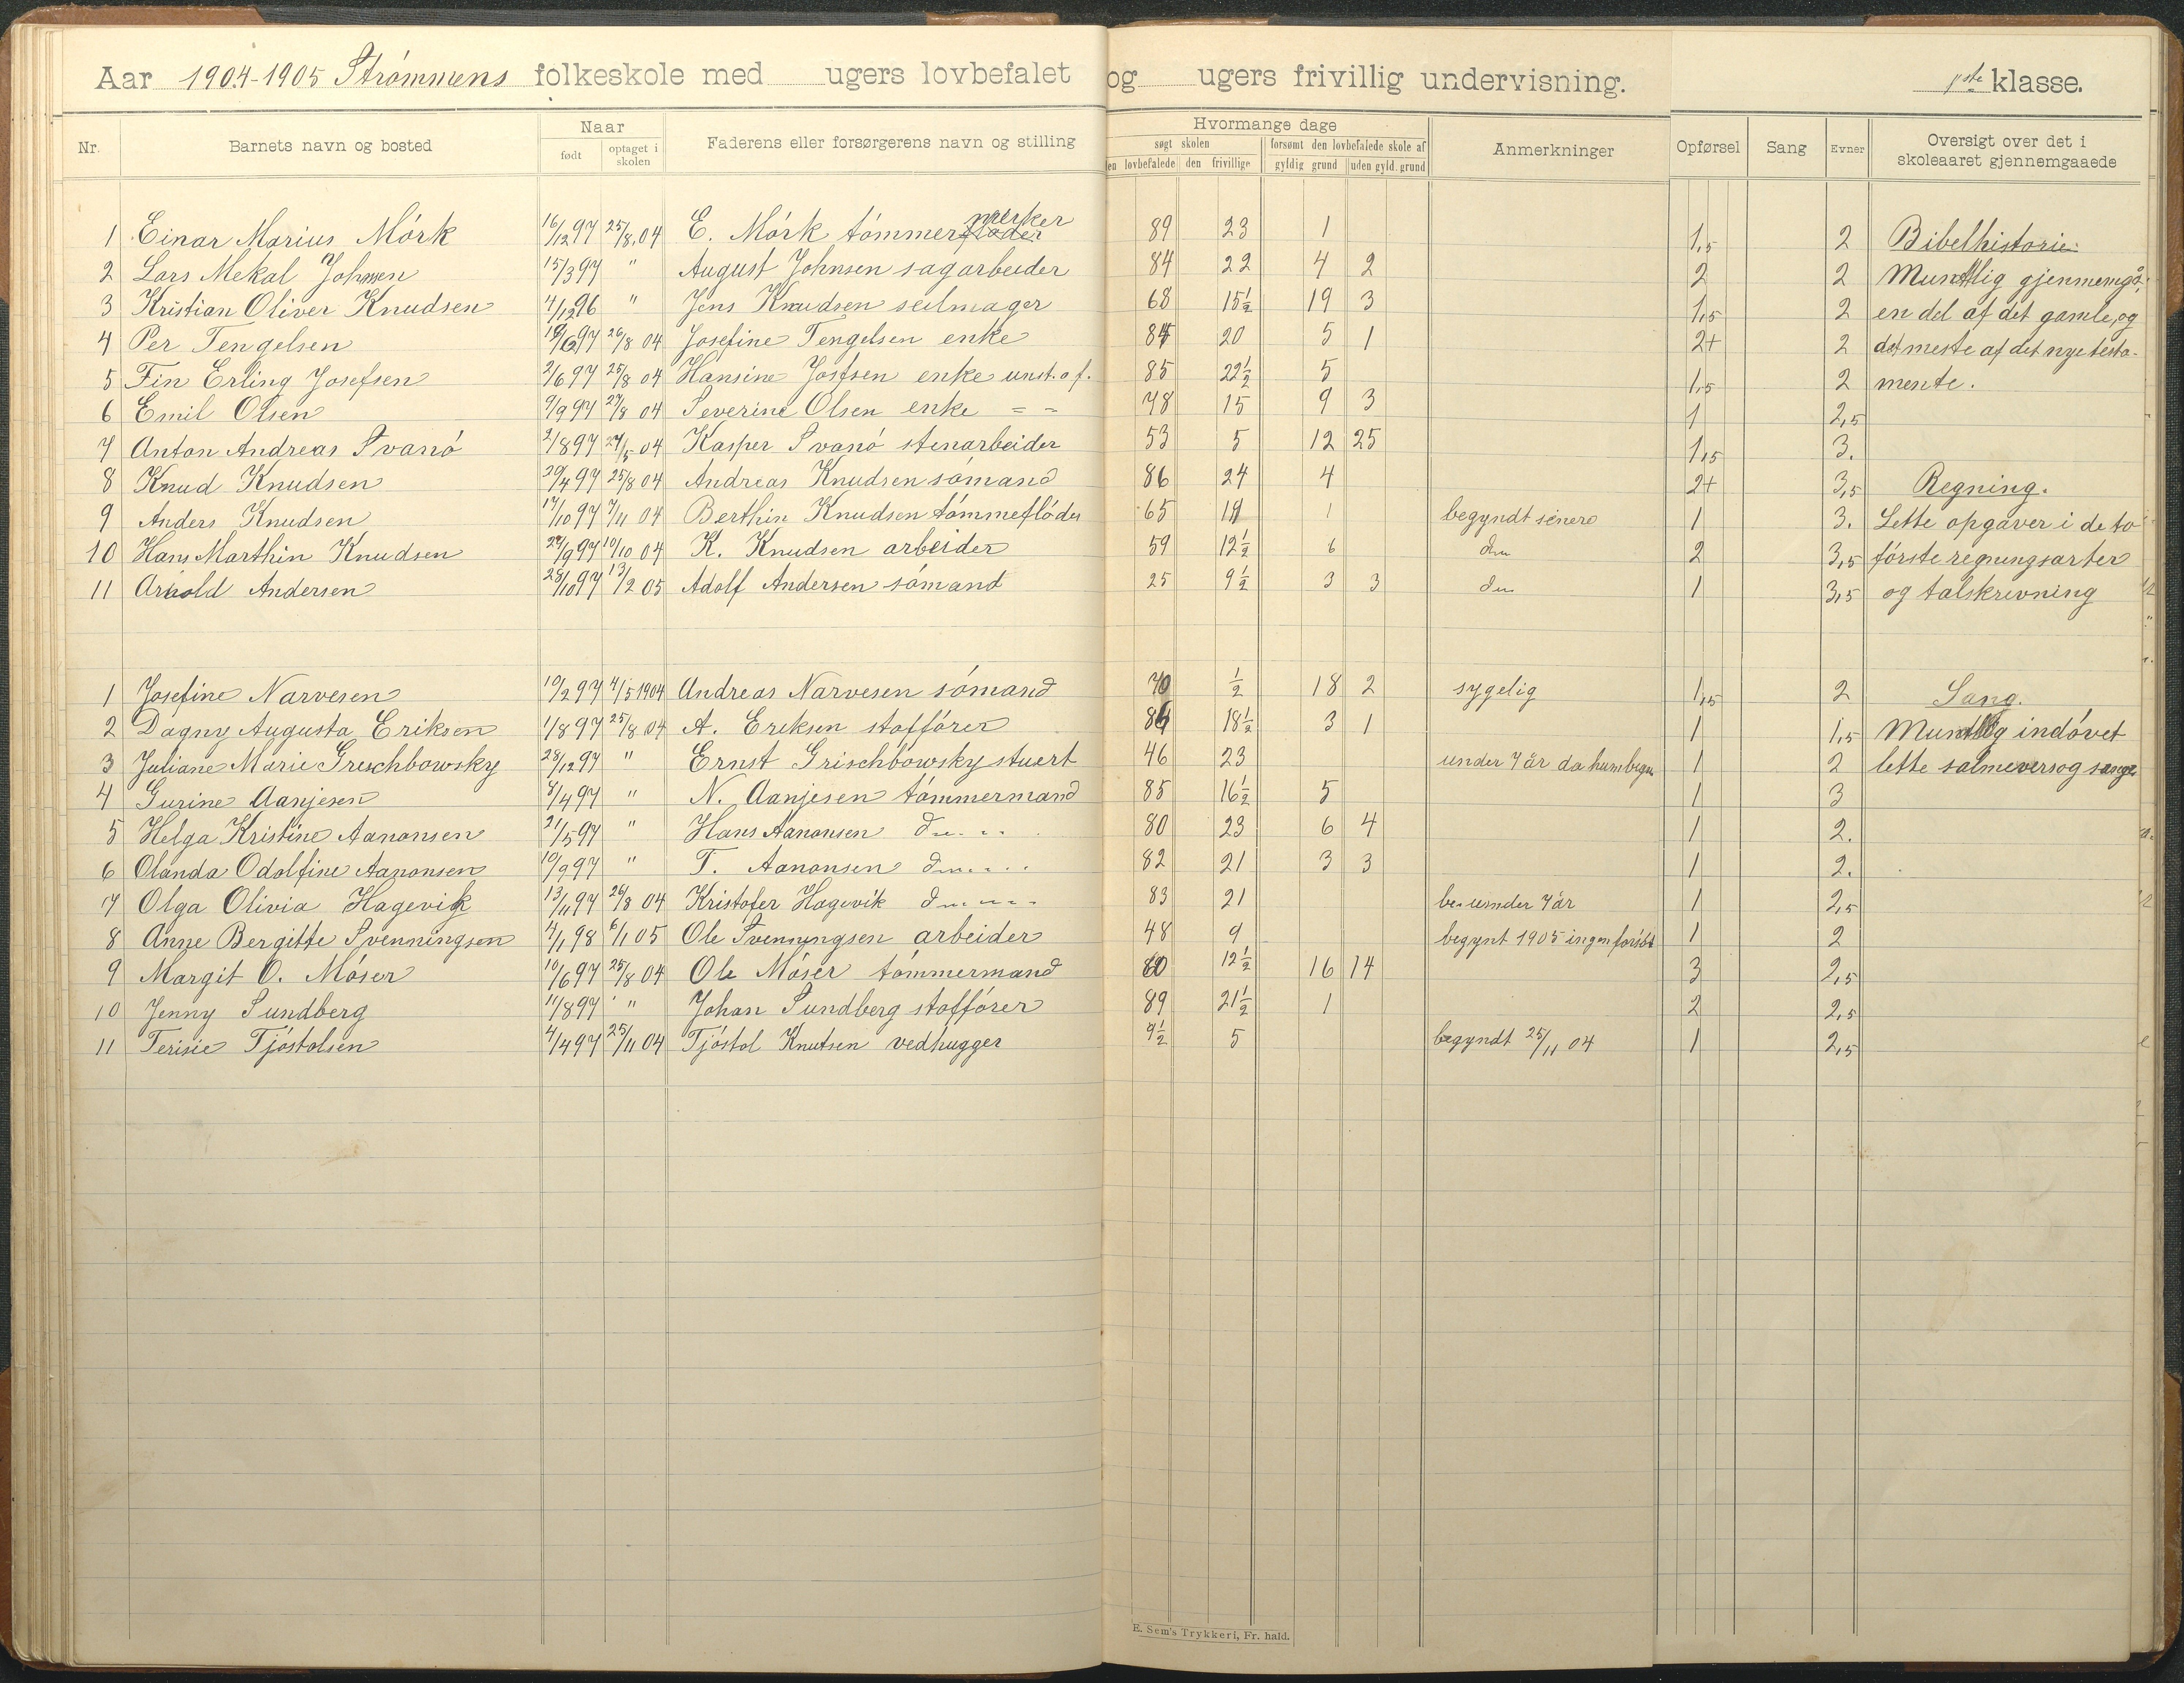 Aar 1904-1905 Strømmens folkeskole med ugers lovbefalet og ugers frivillig undervisning. 1ste klasse.
Nr. Barnets navn og bosted Naar født optaget i skolen Faderens eller forsørgerens navn og stilling Hvormange dage søgt skolen den lovbefalede den frivillige forsømt den lovbefalede skole af gyldig grund uden gyld. grund Anmerkninger Opførsel Sang Evner Oversigt over det i skoleaaret gjennemgaaede
1 Einar Marius Mórk 16/12 97 25/8.04 E. Mórk tómmermerker 89 23 1 1,5 2 Bibelhistorie:
2 Lars Mekal Johnsen 15/3 97 " August Johnsen sagarbeider 84 22 4 2 2 2 Muntlig gjennemgå
3 Kristian Oliver Knudsen 4/12 96 " Jens Knudsen seilmager 68 15½ 19 3 1,5 2 en del af det gamle, og
4 Per Tengelsen 19/6 97 26/8 04 Josefine Tengelsen enke 84 20 5 1 2+ 2 det meste af det nye testa-
5 Fin Erling Josefsen 2/6 97 25/8 04 Hansine Josefsen enke unst. o f. 85 22½ 5 1,5 2 mente.
6 Emil Olsen 9/9 97 27/8 04 Severine Olsen enke = = 78 15 9 3 1 2,5
7 Anton Andreas Svanó 2/8 97 27/5 04 Kasper Svanó stenarbeider 53 5 12 25 1,5 3.
8 Knud Knudsen 29/4 97 25/8 04 Andreas Knudsen sómand 86 24 4 2+ 3,5 Regning.
9 Anders Knudsen 14/10 97 7/11 04 Berthin Knudsen tómmeflóder 65 19 1 begyndt senere 1 3. Lette opgaver i de to
10 Hans Marthin Knudsen 27/9 97 10/10 04 K. Knudsen arbeider 59 12½ 6 do 2 3,5 fórste regningsarter
11 Arnold Andersen 28/10 97 13/2 05 Adolf Andersen sómand 25 9½ 3 3 do 1 3,5 og talskrivning
1 Josefine Narvesen 10/2 97 4/5 1904 Andreas Narvesen sómand 70 ½ 18 2 sygelig 1,5 2 Sang.
2 Dagny Augusta Eriksen 1/8 97 25/8 04 A. Eriksen staffórer 84 18½ 3 1 1 1,5 Muntlig indóvet
3 Juliane Marie Grischbowsky 28/12 97 " Ernst Grischbowsky stuert 46 23 under 7 år da hun begyn 1 2 lette salmevers og sange
4 Gurine Aanjesen 8/4 97 " N. Aanjesen tómmermand 85 16½ 5 1 3
5 Helga Kristine Aanonsen 21/5 97 " Hans Aanonsen do 80 23 6 4 1 2.
6 Olanda Odolfine Aanonsen 10/9 97 " T. Aanonsen do 82 21 3 3 1 2.
7 Olga Olivia Hagevik 13/11 97 26/8 04 Kristofer Hagevik do 83 21 under 7 år 1 2,5
8 Anne Bergitte Svenningsen 4/1 98 6/1 05 Ole Svenningsen arbeider 48 9 begynt 1905 ingen forsót 1 2
9 Margit O. Móser 10/6 97 25/8 04 Ole Móser tómmermand 60 12½ 16 14 3 2,5
10 Jenny Sundberg 11/8 97 " Johan Sundberg staffórer 89 21½ 1 2 2,5
11 Terisie Tjóstolsen 4/4 97 25/11 04 Tjóstol Knutsen vedhugger 9½ 5 begyndt 25/11 04 1 2,5
E. Sem's Trykkeri, Fr. hald.